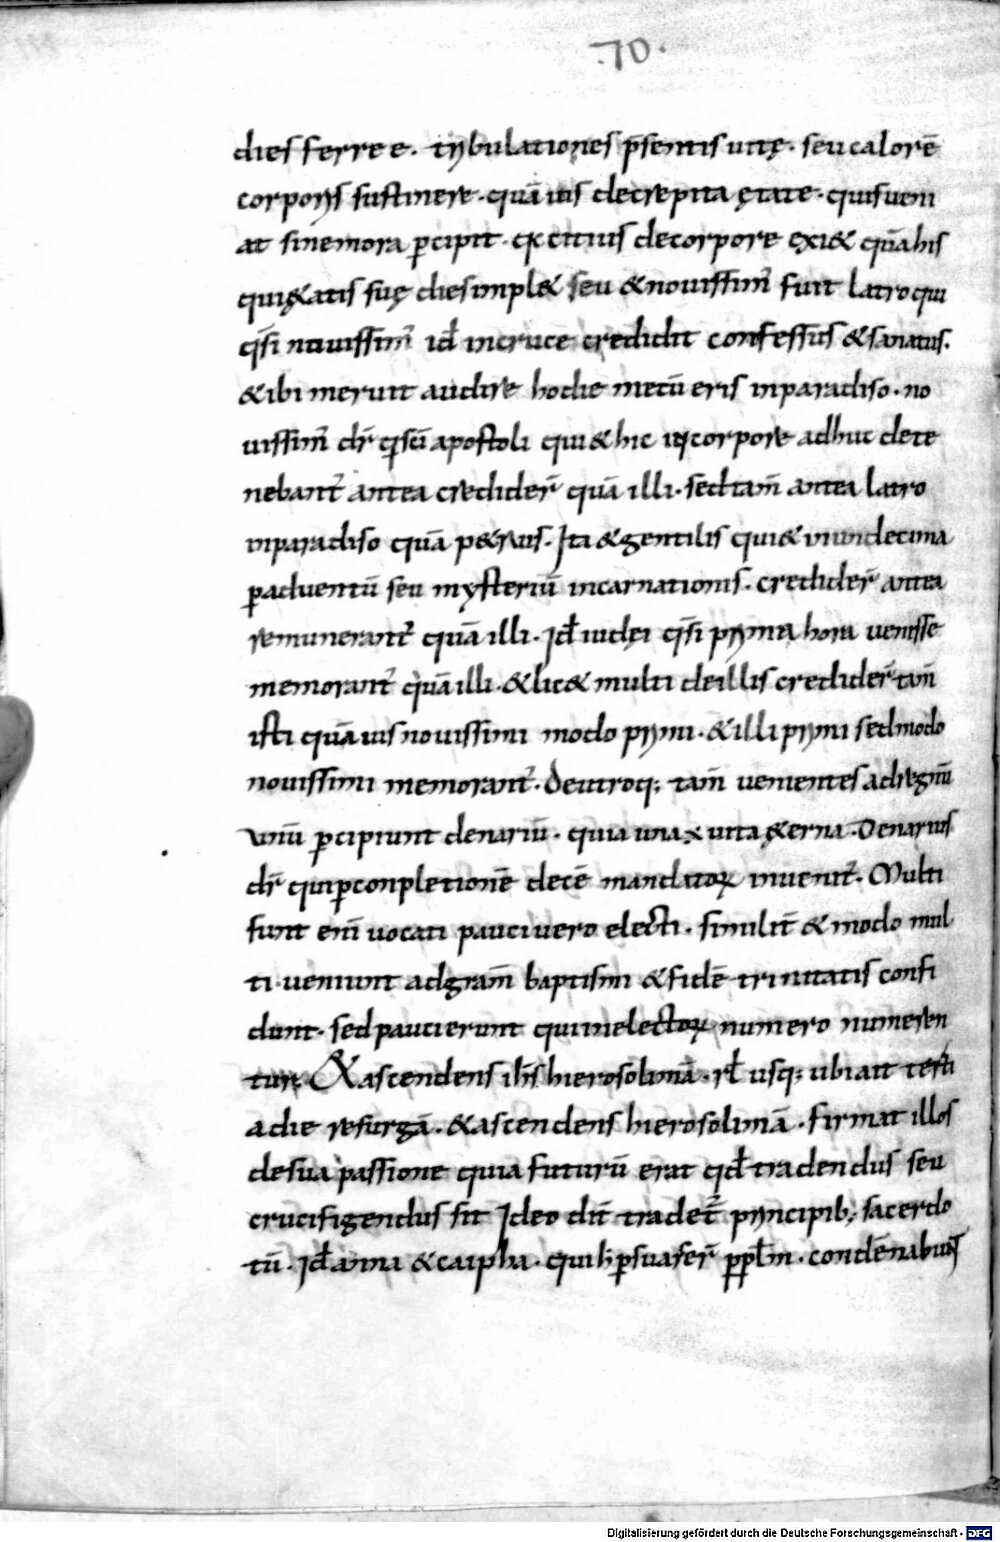 .70.
dies ferree. trybulationes p̄sentis uitę. seu calorē
corporis sustinere. quāuis decrepita ętate. quis ueni
at sinemora p̄cipit. & citius decorpore exi& quā his
qui&atis suę dies impl& seu & nouissim̄ fuit latro qui
q̄si nouissim̄ id̄ incruce credidit confessus & sanatus.
& ibi meruit audire hodie mecū eris inparadiso. no
uissim̄ dr̄ q̄sc̄i apostoli qui & hic incorpore adhuc dete
nebant̄ antea credider̄ quā illi. sed tam̄ antea latro
inparadiso quā p&rus. Ita & gentilis qui & inundecima
p̄aduentū seu mysteriū incarnationis. credider̄ antea
remunerant̄ quā illi. Id̄ iudęi q̄si pryma hora uenisse
memorant̄ quā illi. & lic& multi deillis credider̄ tam̄
isti quāuis nouissimi modo prymi. & illi prymi sed modo
nouissimi memorant̄. Deutroq; tam̄ uenientes adregnū
unū p̄cipiunt denariū. quia una & uita &erna. Denarius
dr̄ qui p̄conpletionē decē mandatoꝝ inuenit̄. Multi
sunt enī uocati pauci uero electi. similit̄ & modo mul
ti ueniunt adgr̄am baptismi & fidē trinitatis confi
dunt. sed pauci erunt qui inelectoꝝ numero numeren
tur. & ascendens ih̄s hierosolimā. rl̄ usq; ubi ait tertia
die resurgā. & ascendens hierosolimā. firmat illos
desua passione quia futurū erat qd̄ tradendus seu
crucifigendus sit Ideo dic̄ tradet̄ pryncipib; sacerdo
tū. Id̄ anna & caipha. qui h̄ p̄suaser̄ ppl̄m. condēnabunt
Digitalisierung gefördert durch die Deutsche Forschungsgemeinschaft - DFG